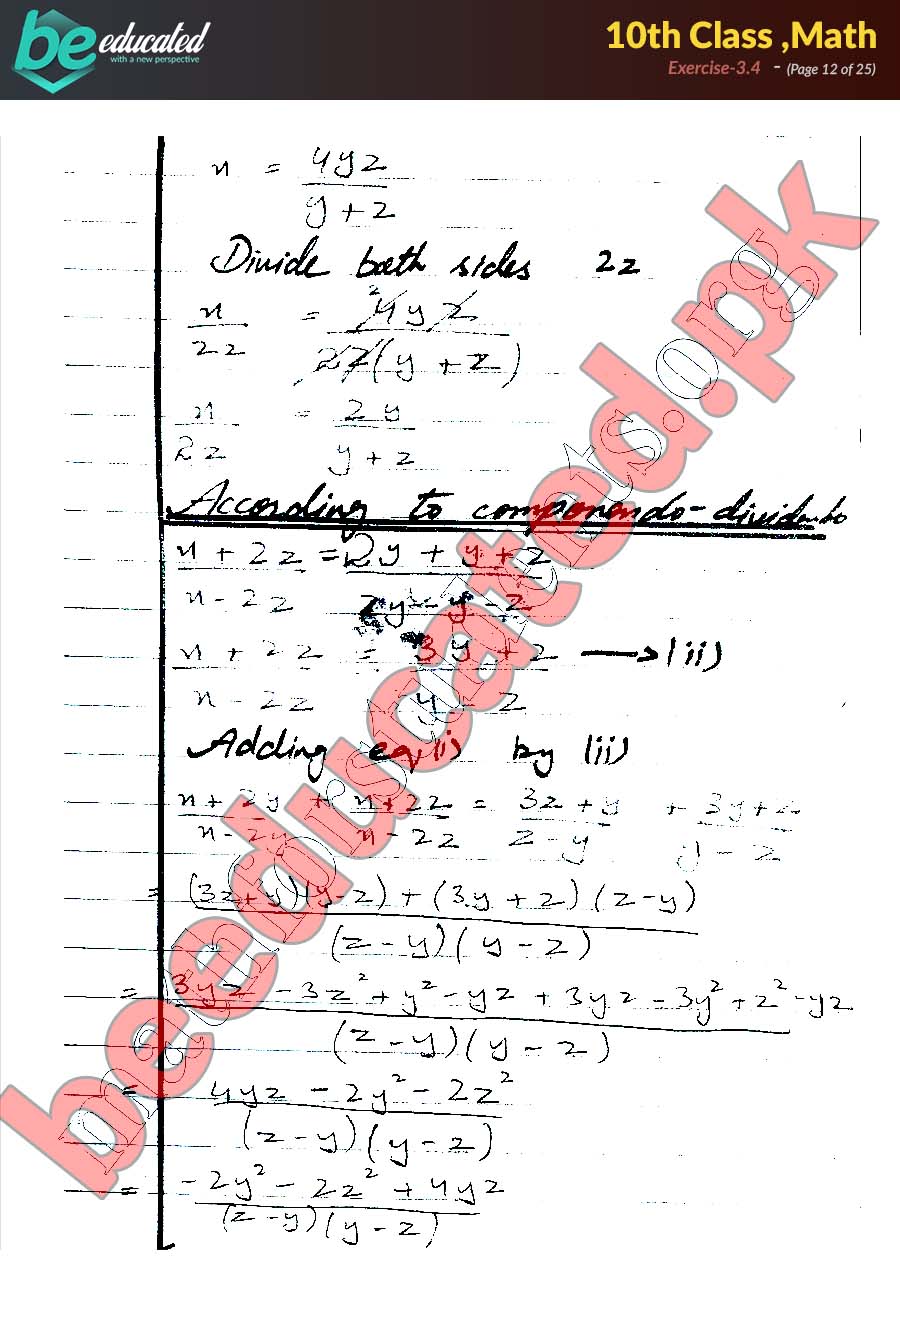 be educated
with a new perspective
10th Class ,Math
Exercise-3.4 - (Page 12 of 25)
x = 4yz / y + z
Divide both sides 2z
x / 2z = ²4yz / 2z(y + z)
x / 2z = 2y / y + z
According to componendo-dividendo
x + 2z / x - 2z = 2y + y + z / 2y - y - z
x + 2z / x - 2z = 3y + z / y - z → (ii)
Adding eq(i) by (ii)
x + 2y / x - 2y + x + 2z / x - 2z = 3z + y / z - y + 3y + z / y - z
= (3z + y)(y - z) + (3y + z)(z - y) / (z - y)(y - z)
= 3yz - 3z² + y² - yz + 3yz - 3y² + z² - yz / (z - y)(y - z)
= 4yz - 2y² - 2z² / (z - y)(y - z)
= -2y² - 2z² + 4yz / (z - y)(y - z)
beeducated.pk